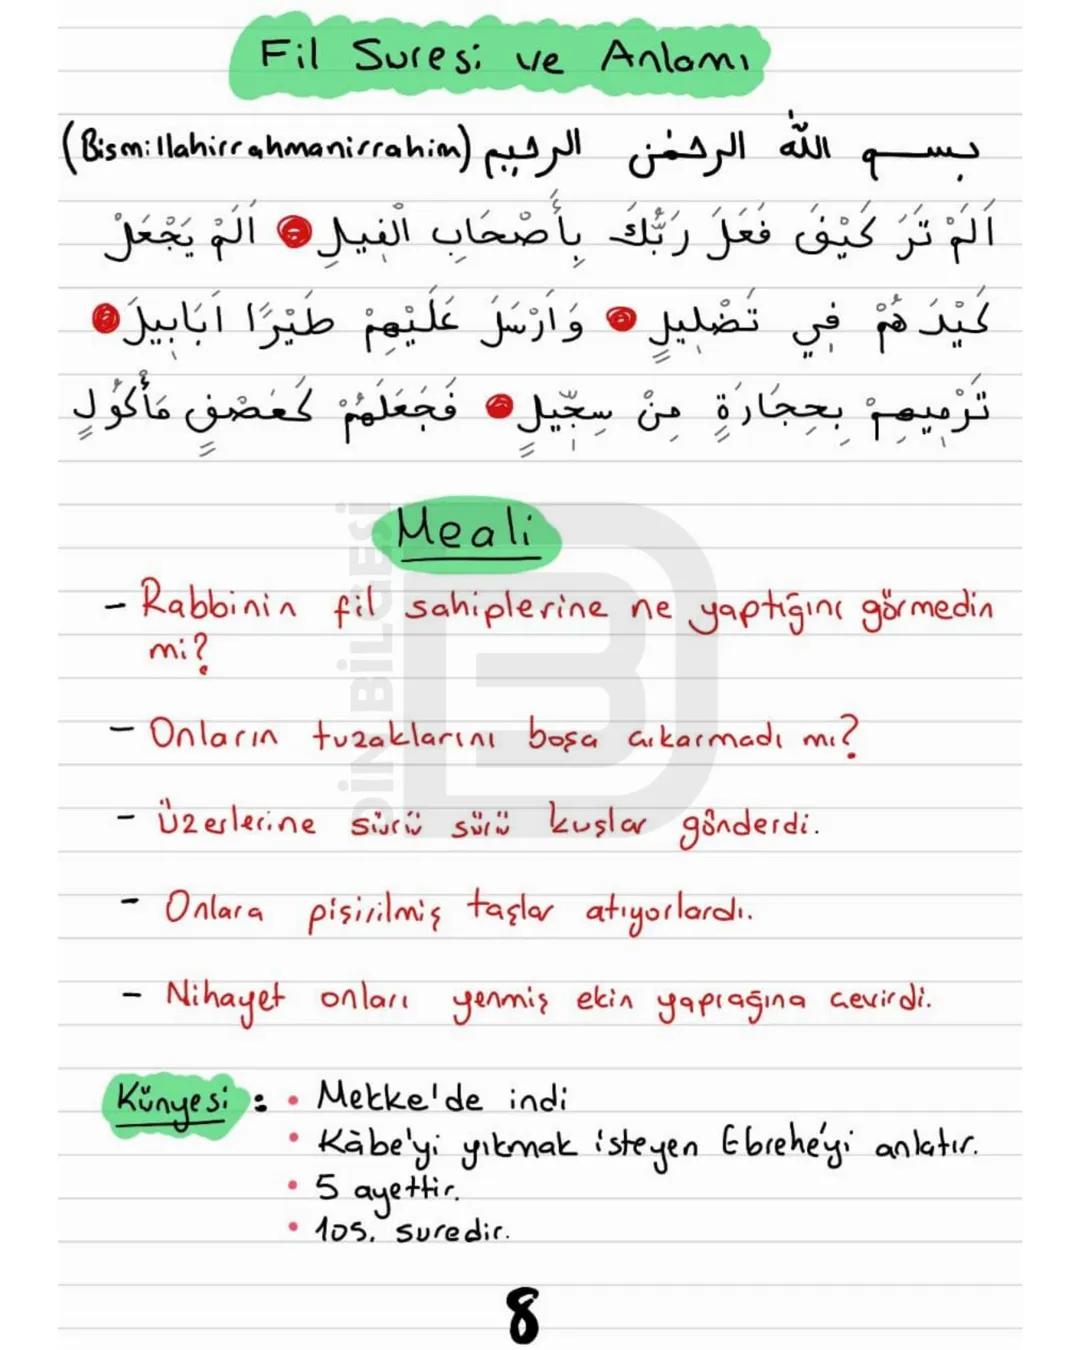 Fil Suresi ve Anlamı
بسم الله الرحمٰن الرحيم (Bismillahirrahmanirrahim)
اَلَمْ تَرَ كَيْفَ فَعَلَ رَبُّكَ بِأَصْحَابِ الْفِيلِ اَلَمْ يَجْعَلْ
كَيْدَ هُمْ فِي تَضْلِيلٍ وَاَرْسَلَ عَلَيْهِمْ طَيْرًا اَبَابِيلَ
تَرْمِيهِمْ بِحِجَارَةٍ مِنْ سِجِّيلٍ فَجَعَلَهُمْ كَعَصْفٍ مَأْكُولٍ
Meali
- Rabbinin fil sahiplerine ne yaptığını görmedin
mi?
- Onların tuzaklarını boşa çıkarmadı mı?
- Üzerlerine sürü sürü kuşlar gönderdi.
- Onlara pişirilmiş taşlar atıyorlardı.
- Nihayet onları yenmiş ekin yaprağına çevirdi.
Künyesi : • Mekke'de indi
• Kâbe'yi yıkmak isteyen Ebrehe'yi anlatır.
• 5 ayettir.
• 105. suredir.
8
DİN BİLGESİ